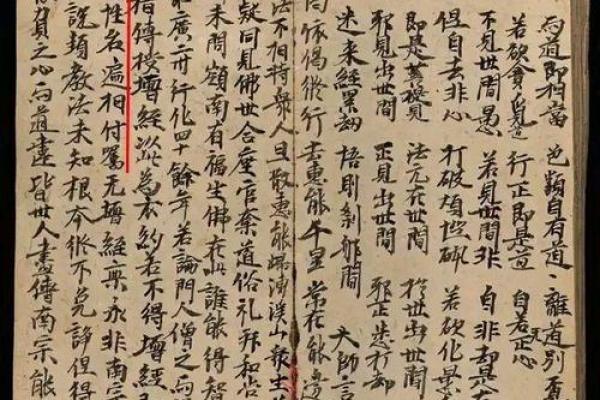 与道即相當 色類自有道 離道別覓
若欲貪覓道 行正即是道 自若无正心
不見世間愚 若見世間非 自非却是
但自去非心 打破煩惱碎 若欲化愚
即是菩提見 法元在世間 於世出世間
見出世間 正見出世間 邪正悉打却
迷來經累劫 悟即剎那間 大師言
依偈修行 去惠能千里 常在能邊
法不相待衆人且散惠能歸漕溪山衆生若
疑同見佛世合座官奈道俗礼拜和尚
未問嶺南有福生佛在此誰能得智
廣二州行化四十餘年若論門人僧之与
指傳授壇經以此為衣約若不得壇經
性名遍相付囑无壇經稟承非南宗
說頓教法未知根本終不免諍但得
負之心与道違皆世人盡傳南宗能